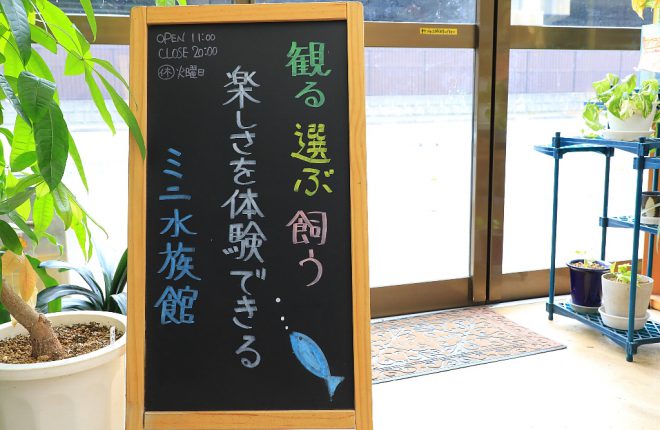 OPEN 11:00
CLOSE 20:00
㊡火曜日
観る 選ぶ 飼う
楽しさを体験できる
ミニ水族館